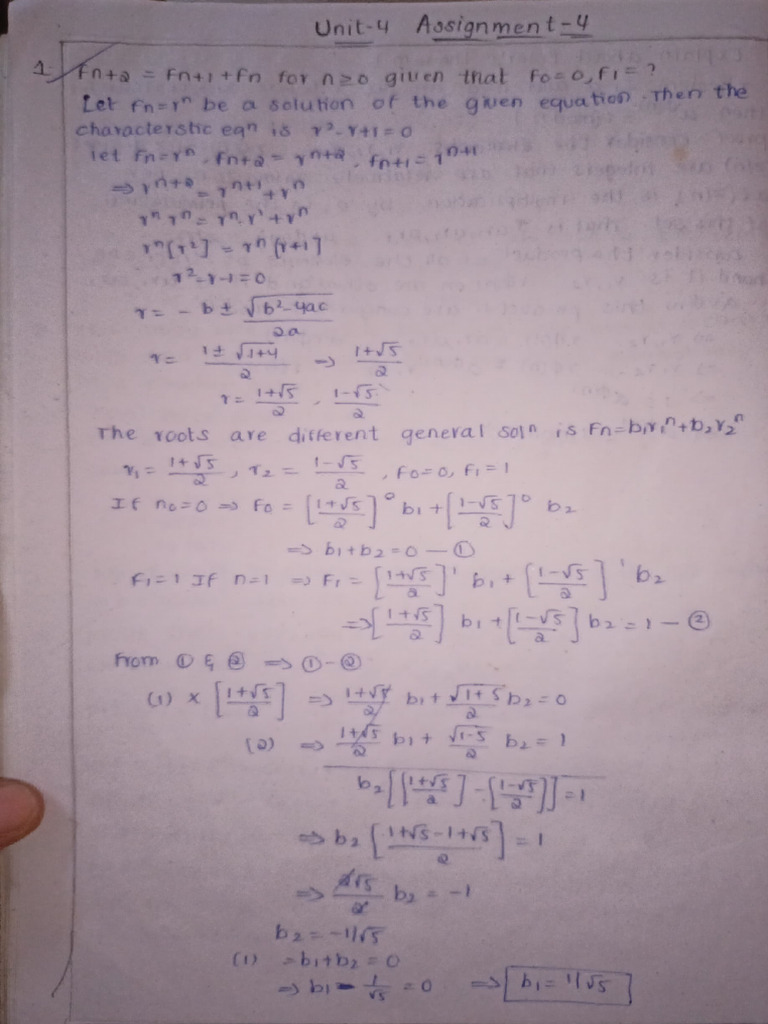 Unit-4 Assignment-4
1. Fn+2 = Fn+1 + Fn for n≥0 given that F0=0, F1= ?
Let Fn=rⁿ be a solution of the given equation. Then the
characterstic eqⁿ is r²-r+1=0
let Fn=rⁿ, Fn+2 = rⁿ⁺², Fn+1 = rⁿ⁺¹
⇒ rⁿ⁺² = rⁿ⁺¹ + rⁿ
rⁿ rⁿ = rⁿ. r¹ + rⁿ
rⁿ[r²] = rⁿ[r+1]
r²-r-1=0
r = -b ± √b²-4ac / 2a
r = 1± √1+4 / 2 ⇒ 1+√5 / 2
r = 1+√5 / 2 , 1-√5 / 2
The roots are different general solⁿ is Fn=b1r1ⁿ+b2r2ⁿ
r1 = 1+√5 / 2 , r2 = 1-√5 / 2 , F0=0, F1=1
If n0=0 ⇒ F0 = [1+√5 / 2]⁰ b1 + [1-√5 / 2]⁰ b2
⇒ b1+b2=0 — ①
F1=1 If n=1 ⇒ F1 = [1+√5 / 2]¹ b1 + [1-√5 / 2]¹ b2
⇒ [1+√5 / 2] b1 + [1-√5 / 2] b2 = 1 — ②
From ① & ② ⇒ ①-②
(1) × [1+√5 / 2] ⇒ 1+√5 / 2 b1 + √1+5 / 2 b2 = 0
(2) ⇒ 1+√5 / 2 b1 + √1-5 / 2 b2 = 1
b2[[1+√5 / 2] - [1-√5 / 2]] = 1
⇒ b2 [1+√5-1+√5 / 2] = 1
⇒ 2√5 / 2 b2 = -1
b2 = -1/√5
(1) = b1+b2 = 0
⇒ b1 - 1/√5 = 0 ⇒ b1 = 1/√5